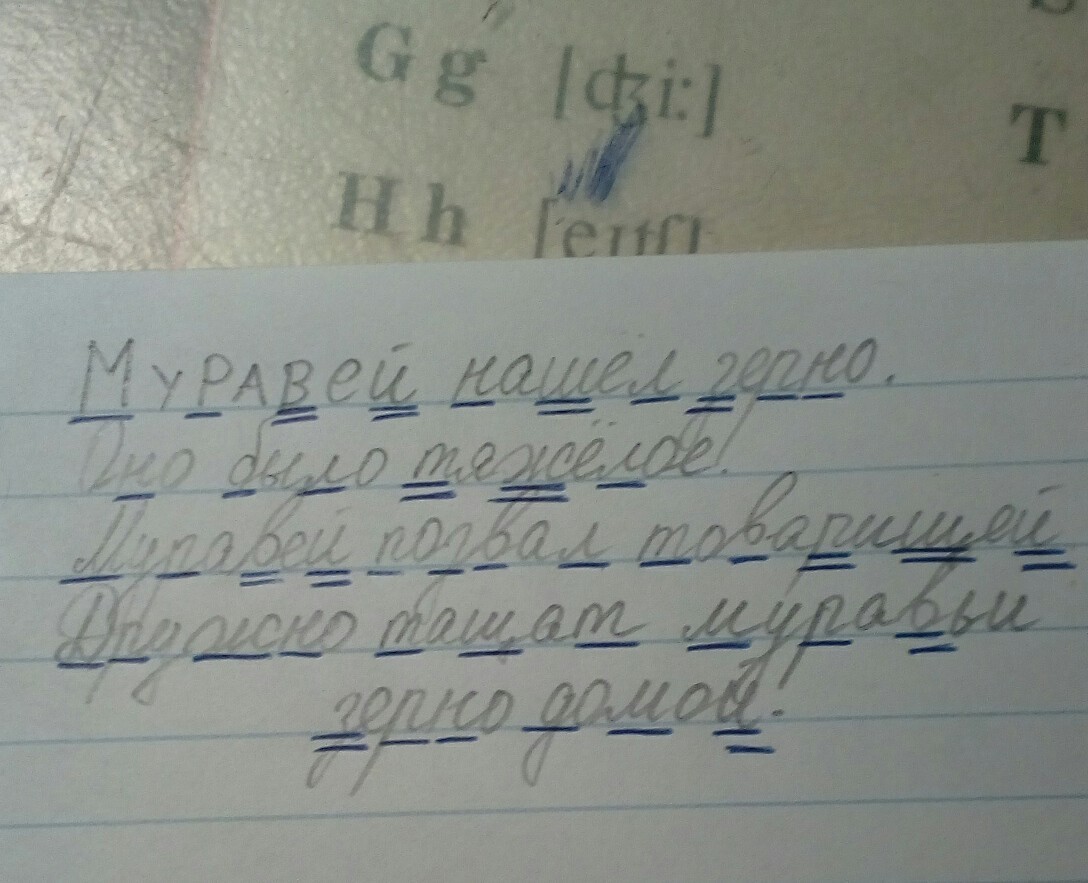 G g [ʤi:]
T
H h [eɪtʃ]
Муравей нашёл зерно.
Оно было тяжёлое!
Муравей позвал товарищей
Дружно тащат муравьи
зерно домой!